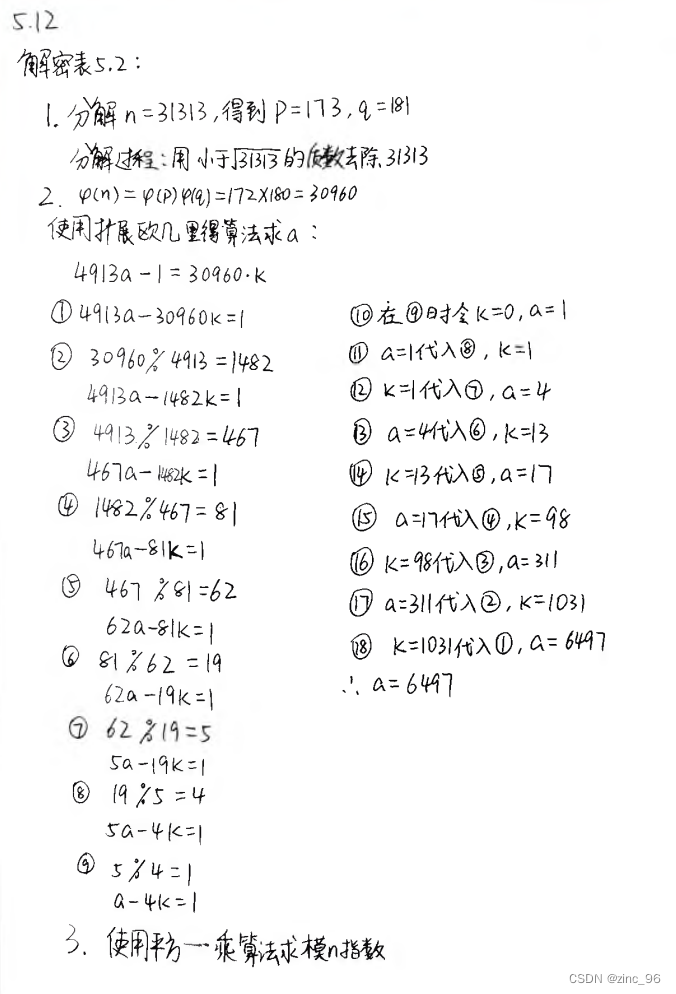 5.12
解密表5.2：
1. 分解n=31313,得到P=173,q=181
分解过程：用小于√31313的质数去除31313
2. φ(n)=φ(p)φ(q)=172×180=30960
使用扩展欧几里得算法求a：
4913a-1=30960·k
① 4913a-30960k=1
② 30960%4913=1482
4913a-1482k=1
③ 4913%1482=467
467a-1482k=1
④ 1482%467=81
467a-81k=1
⑤ 467%81=62
62a-81k=1
⑥ 81%62=19
62a-19k=1
⑦ 62%19=5
5a-19k=1
⑧ 19%5=4
5a-4k=1
⑨ 5%4=1
a-4k=1
⑩ 在⑨时令k=0,a=1
⑪ a=1代入⑧,k=1
⑫ k=1代入⑦,a=4
⑬ a=4代入⑥,k=13
⑭ k=13代入⑤,a=17
⑮ a=17代入④,k=98
⑯ k=98代入③,a=311
⑰ a=311代入②,k=1031
⑱ k=1031代入①,a=6497
∴ a=6497
3. 使用平方—乘算法求模n指数
CSDN @zinc_96